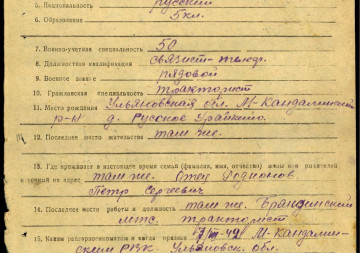 5. Национальность русский
6. Образование 5 кл.
7. Военно-учетная специальность 50
8. Должностная квалификация связист-телегр.
9. Военное звание рядовой
10. Гражданская специальность тракторист
11. Место рождения Ульяновская обл. М-Кандалинский
р-н д. Русское Урайкино
12. Последнее место жительства там же.
13. Где проживает в настоящее время семья (фамилия, имя, отчество) жены или родителей
и точный их адрес там же. Отец Родионов
Петр Сергеевич
14. Последнее место работы и должность там же.
мтс. тракторист
15. Каким райгорвоенкоматом и когда призван VIII-42 М-Кандалин-
ским РВК. Ульяновск. обл.